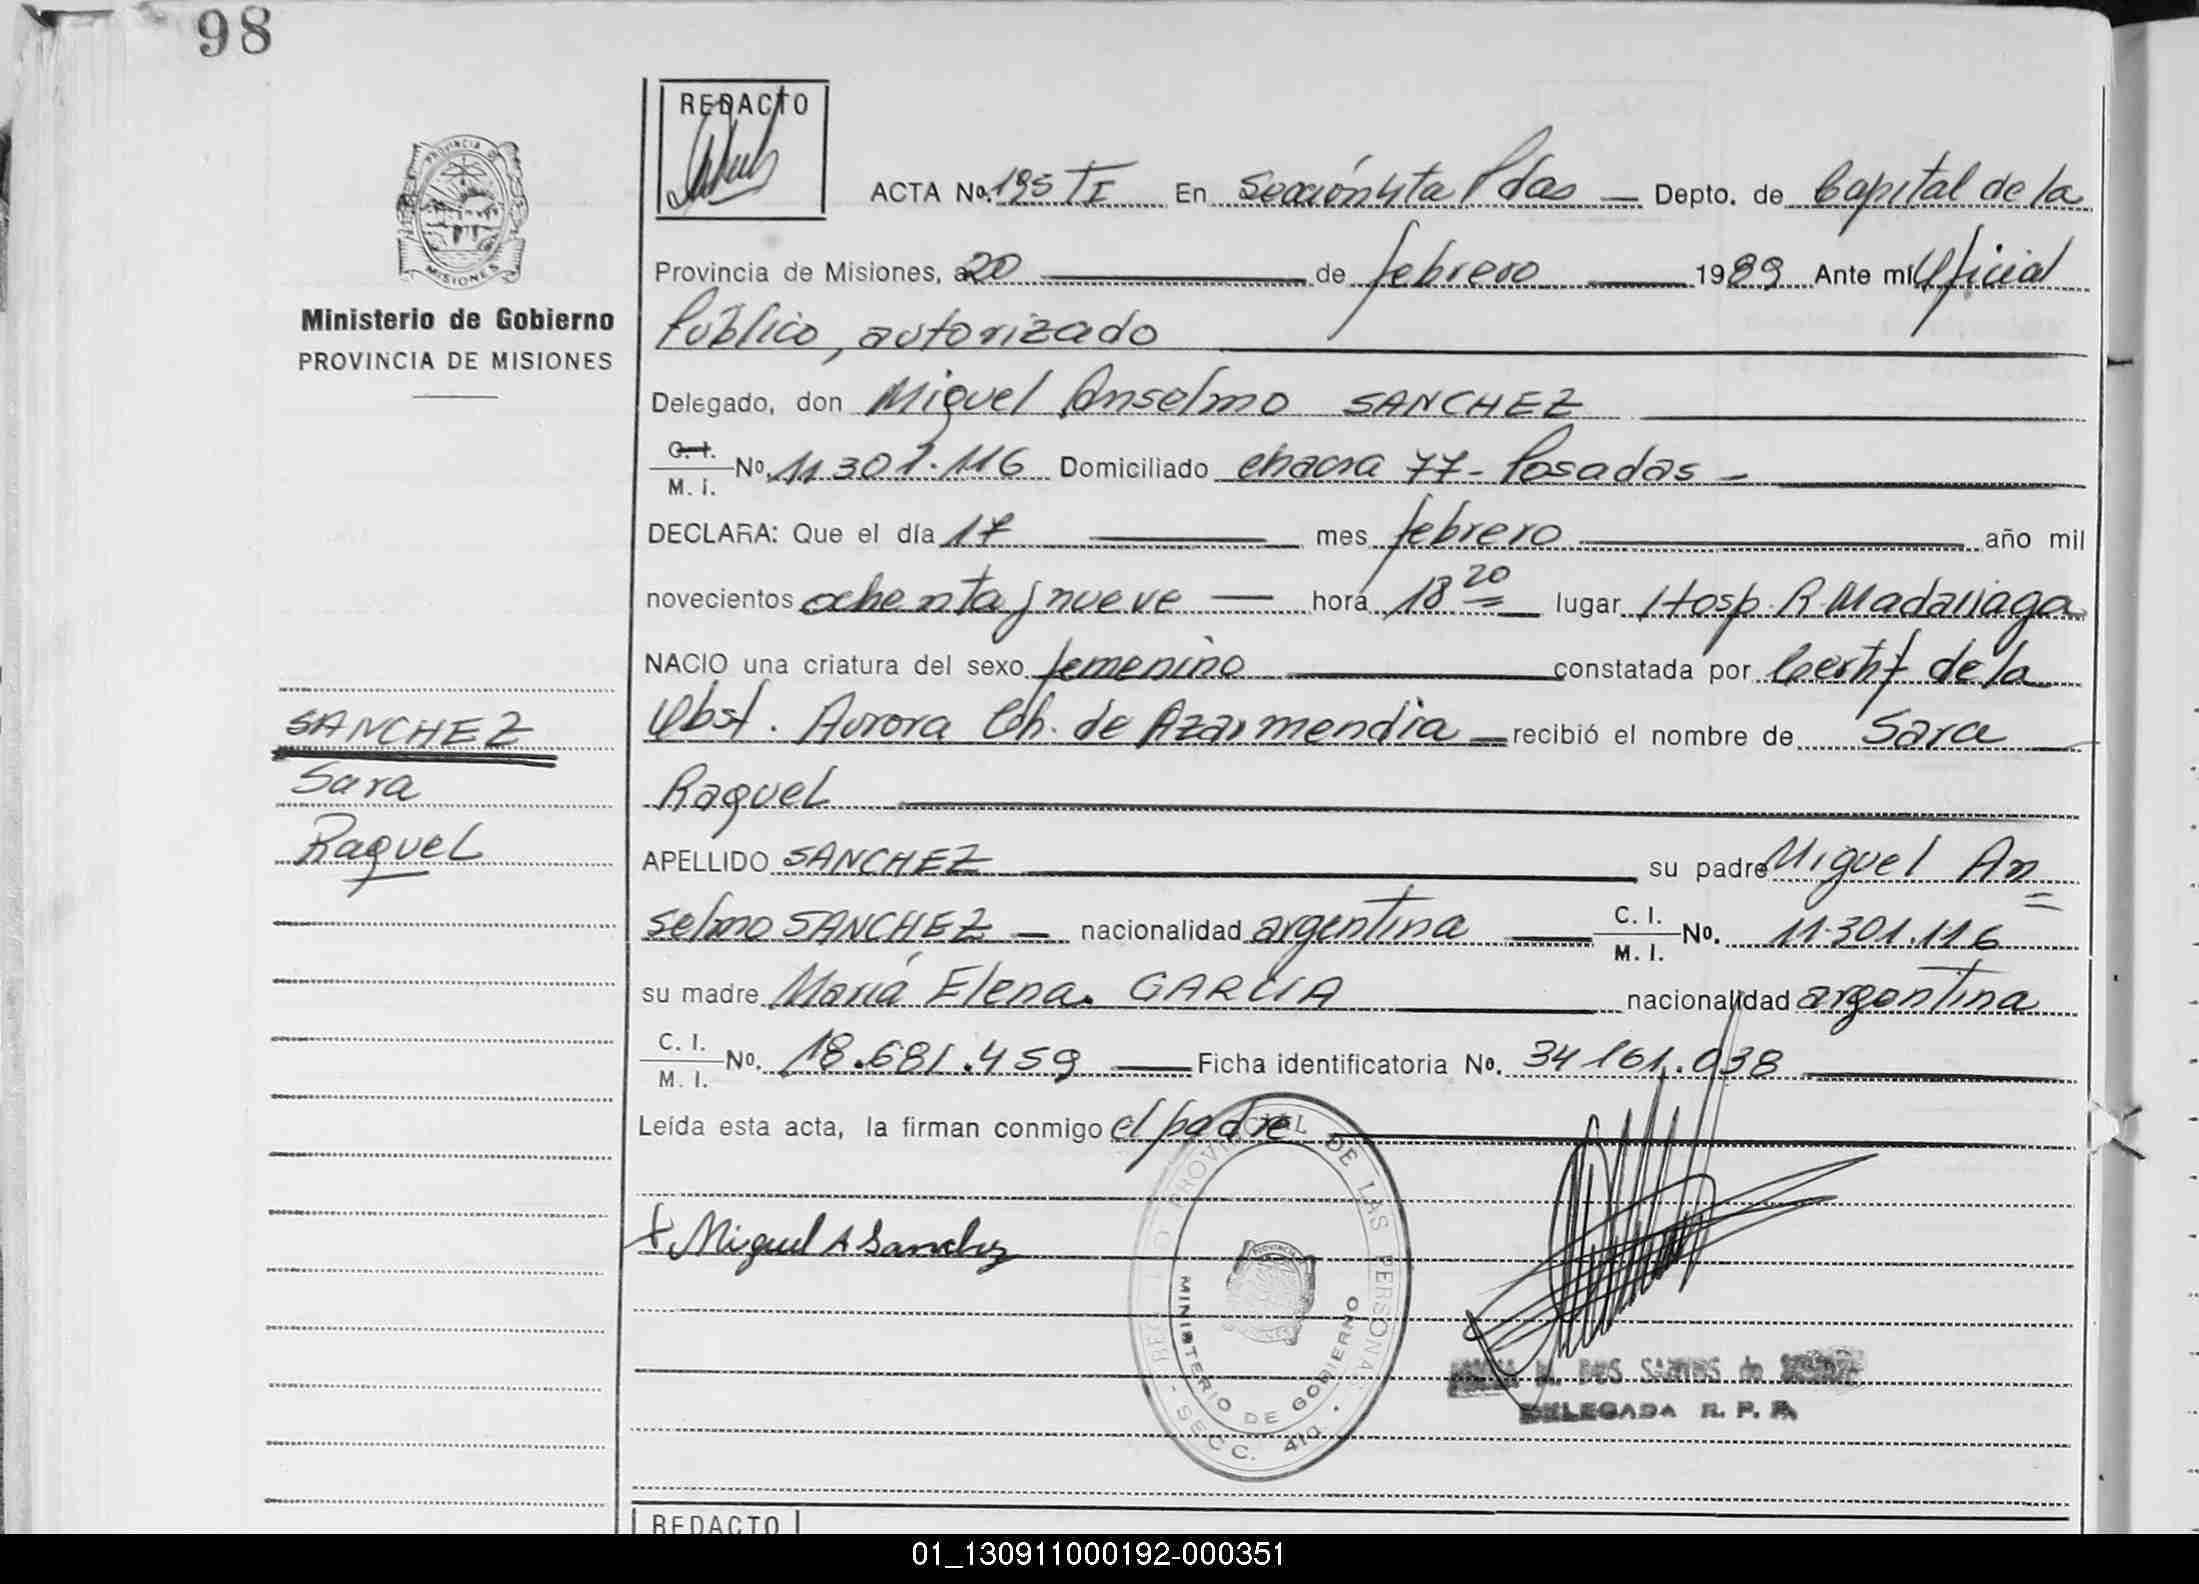 98
REDACTO
ACTA No. 195 TI En Sección 4ta Pdas — Depto. de Capital de la
Provincia de Misiones, a 20 de febrero 1989 Ante mí Oficial
Público, autorizado
PROVINCIA DE
MISIONES
Ministerio de Gobierno
PROVINCIA DE MISIONES
Delegado, don Miguel Anselmo SANCHEZ
C. I.
M. I. No. 11.301.116 Domiciliado chacra 77 - Posadas -
DECLARA: Que el día 17 mes febrero año mil
novecientos ochenta y nueve — hora 18 20 lugar Hosp. R. Madariaga
NACIO una criatura del sexo femenino constatada por Certif de la
Obst. Aurora Ch. de Azarmendia recibió el nombre de Sara
Raquel
SANCHEZ
Sara
Raquel
APELLIDO SANCHEZ su padre Miguel An=
selmo SANCHEZ — nacionalidad argentina C. I.
M. I. No. 11.301.116
su madre María Elena. GARCIA nacionalidad argentina
C. I.
M. I. No. 18.681.459 Ficha identificatoria No. 34161.038
Leída esta acta, la firman conmigo el padre
Miguel A Sanchez
PROVINCIAL DE LAS PERSONAS
MINISTERIO DE GOBIERNO
SECC. 4ta.
DOS SANTOS de
DELEGADA R. P. P.
REDACTO
01_130911000192-000351